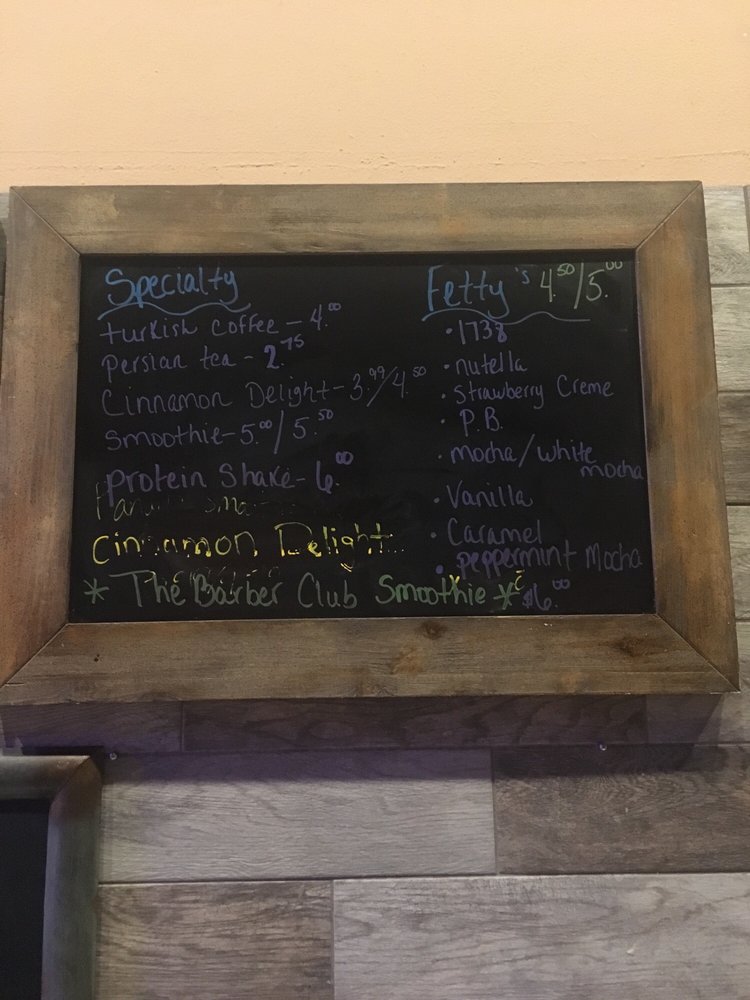 Specialty
turkish coffee - 4.00
persian tea - 2.75
Cinnamon Delight - 3.99/4.50
smoothie - 5.00/5.50
protein shake - 6.00
Cinnamon Delight
* The Barber Club Smoothie * $6.00
Fetty's 4.50/5.00
• 1738
• nutella
• Strawberry Creme
• P.B.
• mocha/white
mocha
• Vanilla
• Caramel
• peppermint Mocha